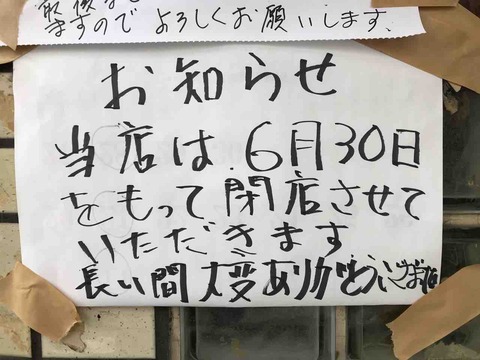 ますので よろしくお願いします.
お知らせ
当店は 6月30日
をもって 閉店させて
いただきます
長い間 大変ありがとうございました